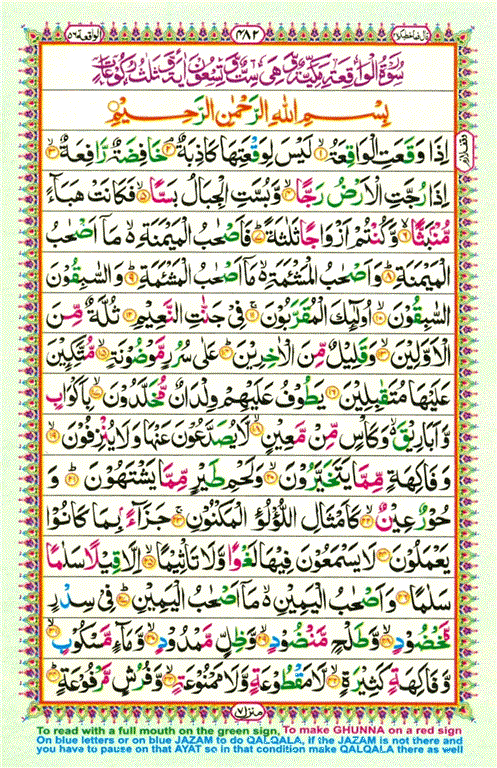 الواقعة ٥٦ ٤٨٢ قال فما خطبكم ٢٧
سُوْرَةُ الْوَاقِعَةِ مَكِّيَّةٌ وَّهِيَ سِتٌّ وَّتِسْعُوْنَ اٰيَةً وَّثَلٰثُ رُكُوْعَاتٍ
بِسْمِ اللهِ الرَّحْمٰنِ الرَّحِيْمِ
اِذَا وَقَعَتِ الْوَاقِعَةُ ۙ﴿۱﴾ لَيْسَ لِوَقْعَتِهَا كَاذِبَةٌ ۘ﴿۲﴾ خَافِضَةٌ رَّافِعَةٌ ۙ﴿۳﴾
اِذَا رُجَّتِ الْاَرْضُ رَجًّا ۙ﴿۴﴾ وَّبُسَّتِ الْجِبَالُ بَسًّا ۙ﴿۵﴾ فَكَانَتْ هَبَآءً
مُّنْۢبَثًّا ۙ﴿۶﴾ وَّكُنْتُمْ اَزْوَاجًا ثَلٰثَةً ؕ﴿۷﴾ فَاَصْحٰبُ الْمَيْمَنَةِ ۙ۬ مَاۤ اَصْحٰبُ
الْمَيْمَنَةِ ؕ﴿۸﴾ وَاَصْحٰبُ الْمَشْـَٔمَةِ ۙ۬ مَاۤ اَصْحٰبُ الْمَشْـَٔمَةِ ؕ﴿۹﴾ وَالسّٰبِقُوْنَ
السّٰبِقُوْنَ ۚۙ﴿۱۰﴾ اُولٰٓئِكَ الْمُقَرَّبُوْنَ ۚ﴿۱۱﴾ فِيْ جَنّٰتِ النَّعِيْمِ ﴿۱۲﴾ ثُلَّةٌ مِّنَ
الْاَوَّلِيْنَ ۙ﴿۱۳﴾ وَقَلِيْلٌ مِّنَ الْاٰخِرِيْنَ ؕ﴿۱۴﴾ عَلٰى سُرُرٍ مَّوْضُوْنَةٍ ۙ﴿۱۵﴾ مُّتَّكِـِٕيْنَ
عَلَيْهَا مُتَقٰبِلِيْنَ ﴿۱۶﴾ يَطُوْفُ عَلَيْهِمْ وِلْدَانٌ مُّخَلَّدُوْنَ ۙ﴿۱۷﴾ بِاَكْوَابٍ
وَّاَبَارِيْقَ ۙ۬ وَكَاْسٍ مِّنْ مَّعِيْنٍ ۙ﴿۱۸﴾ لَّا يُصَدَّعُوْنَ عَنْهَا وَلَا يُنْزِفُوْنَ ۙ﴿۱۹﴾
وَفَاكِهَةٍ مِّمَّا يَتَخَيَّرُوْنَ ۙ﴿۲۰﴾ وَلَحْمِ طَيْرٍ مِّمَّا يَشْتَهُوْنَ ؕ﴿۲۱﴾ وَ
حُوْرٌ عِيْنٌ ۙ﴿۲۲﴾ كَاَمْثَالِ اللُّؤْلُؤِ الْمَكْنُوْنِ ۚ﴿۲۳﴾ جَزَآءًۢ بِمَا كَانُوْا
يَعْمَلُوْنَ ﴿۲۴﴾ لَا يَسْمَعُوْنَ فِيْهَا لَغْوًا وَّلَا تَاْثِيْمًا ۙ﴿۲۵﴾ اِلَّا قِيْلًا سَلٰمًا
سَلٰمًا ﴿۲۶﴾ وَاَصْحٰبُ الْيَمِيْنِ ۙ۬ مَاۤ اَصْحٰبُ الْيَمِيْنِ ؕ﴿۲۷﴾ فِيْ سِدْرٍ
مَّخْضُوْدٍ ۙ﴿۲۸﴾ وَّطَلْحٍ مَّنْضُوْدٍ ۙ﴿۲۹﴾ وَّظِلٍّ مَّمْدُوْدٍ ۙ﴿۳۰﴾ وَّمَآءٍ مَّسْكُوْبٍ ۙ﴿۳۱﴾
وَّفَاكِهَةٍ كَثِيْرَةٍ ۙ﴿۳۲﴾ لَّا مَقْطُوْعَةٍ وَّلَا مَمْنُوْعَةٍ ۙ﴿۳۳﴾ وَّفُرُشٍ مَّرْفُوْعَةٍ ؕ﴿۳۴﴾
منزل ٧
To read with a full mouth on the green sign, To make GHUNNA on a red sign
On blue letters or on blue JAZAM to do QALQALA, if the JAZAM is not there and
you have to pause on that AYAT so in that condition make QALQALA there as well